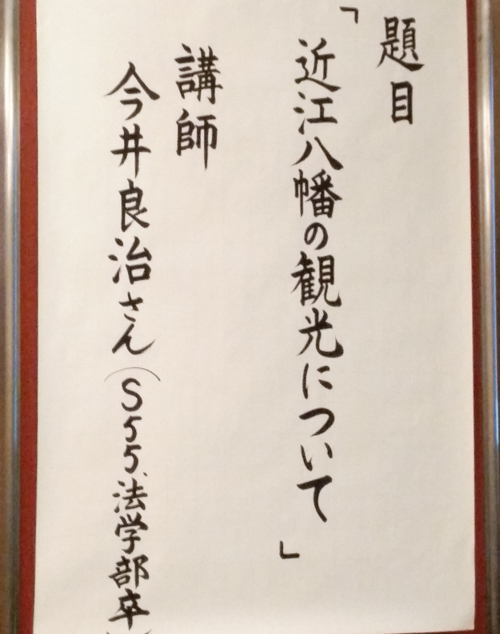 題目
「近江八幡の観光について」
講師
今井良治さん(S55、法学部卒)